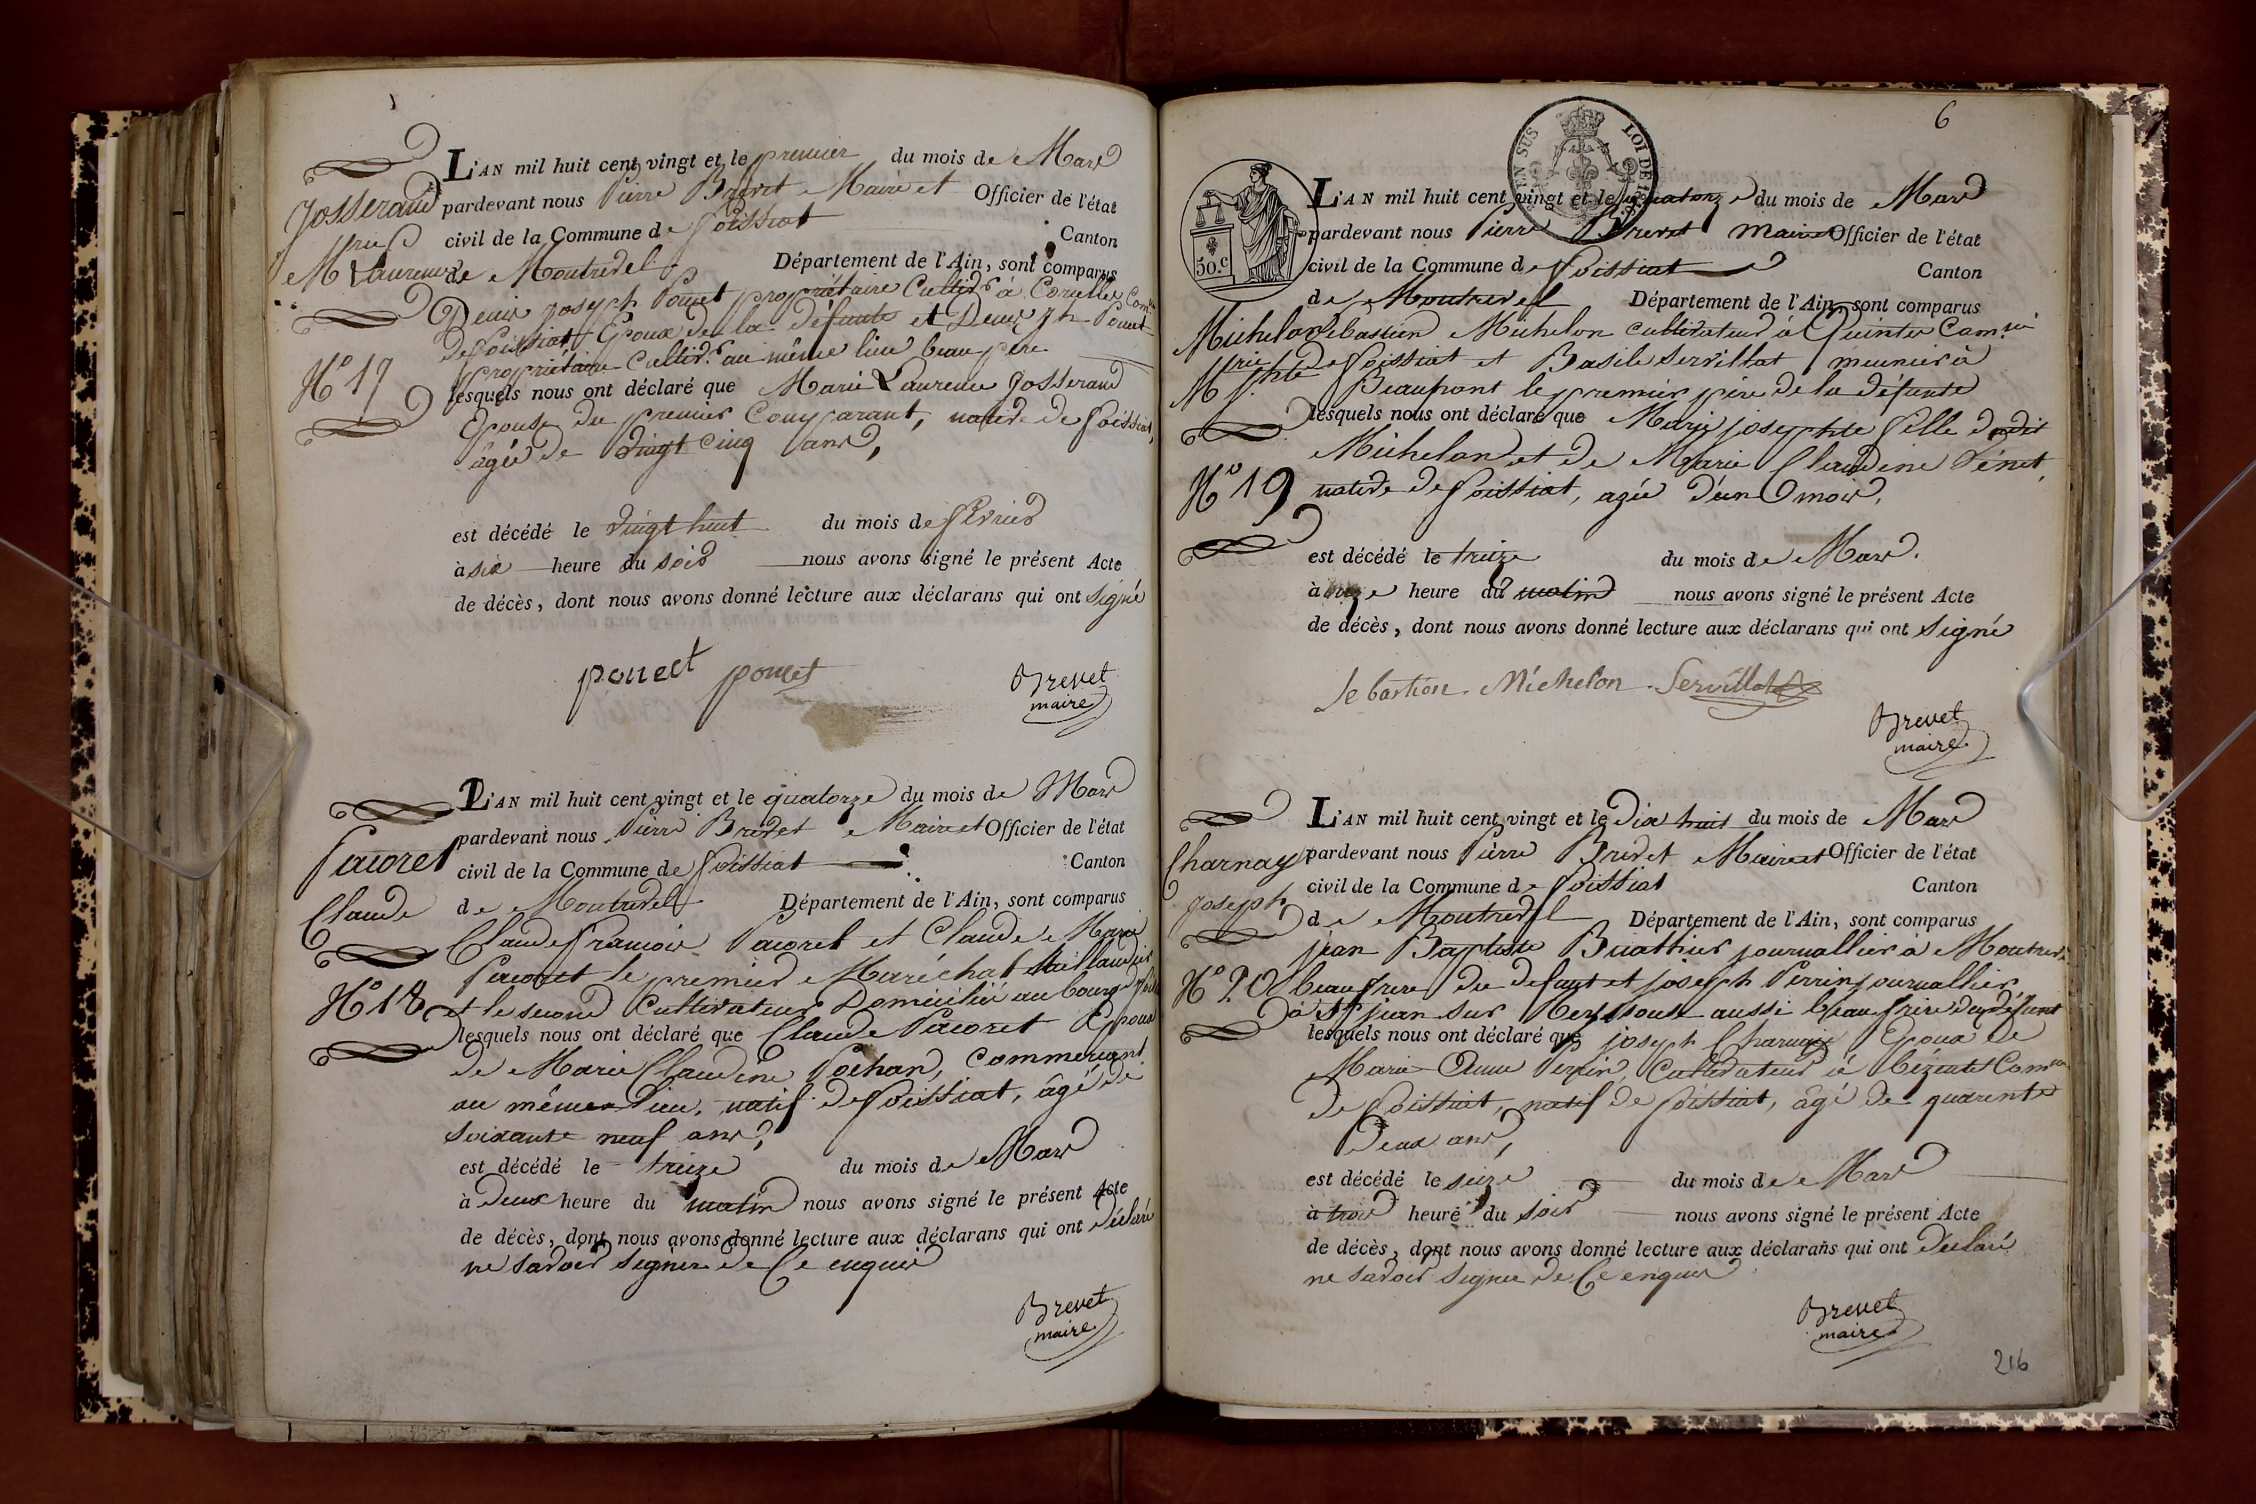 L'AN mil huit cent vingt et le premier du mois de Mars
pardevant nous Pierre Brevet Maire et Officier de l'état
civil de la Commune de Foissiat Canton
de Montrevel Département de l'Ain, sont comparus
Denis joseph Poncet propriétaire Cultivr à Comne
de Foissiat Epoux de la défunte et Denis jh Poncet
propriétaire Cultivr au même lieu beau père
lesquels nous ont déclaré que Marie Laurence Josserand
Epouse du premier Comparant, native de Foissiat,
âgée de vingt cinq ans,
est décédé le vingt huit du mois de février
à six heure du soir nous avons signé le présent Acte
de décès, dont nous avons donné lecture aux déclarans qui ont signé
poncet poncet Brevet
maire
Josserand
Mrie
Laurence
N° 17
L'AN mil huit cent vingt et le quatorze du mois de Mars
pardevant nous Pierre Brevet Maire et Officier de l'état
civil de la Commune de Foissiat Canton
de Montrevel Département de l'Ain, sont comparus
Claude François Pacoret et Claude Marie
Pacoret le premier Maréchal taillandier
et le second Cultivateur Domicilié au bourg de
lesquels nous ont déclaré que Claude Pacoret Epoux
de Marie Claudine Pochan, Commerçant
au même lieu, natif de Foissiat, âgé de
soixante neuf ans,
est décédé le treize du mois de Mars
à Deux heure du matin nous avons signé le présent Acte
de décès, dont nous avons donné lecture aux déclarans qui ont déclaré
ne savoir signer de Ce enquis
Brevet
maire
Pacoret
Claude
N° 18
6
EN SUS LOI DE
50.c
L'AN mil huit cent vingt et le quatorze du mois de Mars
pardevant nous Pierre Brevet Maire Officier de l'état
civil de la Commune de Foissiat Canton
de Montrevel Département de l'Ain, sont comparus
Sébastien Michelon cultivateur à Quinte Comne
de Foissiat et Basile Servillat meunier à
Beaupont le premier père de la défunte
lesquels nous ont déclaré que Marie josephte fille dudit
Michelon et de Marie Claudine Vénet,
native de Foissiat, agée d'un mois,
est décédé le treize du mois de Mars.
à onze heure du matin nous avons signé le présent Acte
de décès, dont nous avons donné lecture aux déclarans qui ont signé
Sebastien Michelon Servillat
Brevet
maire
Michelon
Mrie jphte
N° 19
L'AN mil huit cent vingt et le Dix huit du mois de Mars
pardevant nous Pierre Brevet Maire et Officier de l'état
civil de la Commune de Foissiat Canton
de Montrevel Département de l'Ain, sont comparus
jean Baptiste Buathier journallier à Montrevel
beau frere du defunt et joseph Perrin journallier
à St jean sur Reyssouze aussi beau frère du défunt
lesquels nous ont déclaré que joseph Charnay Epoux de
Marie Anne Perrin, Cultivateur à Comne
de Foissiat, natif de Foissiat, âgé de quarente
Deux ans,
est décédé le seize du mois de Mars
à trois heure du soir nous avons signé le présent Acte
de décès, dont nous avons donné lecture aux déclarans qui ont déclaré
ne savoir signer de Ce enquis
Brevet
maire
Charnay
Joseph
N° 20
216